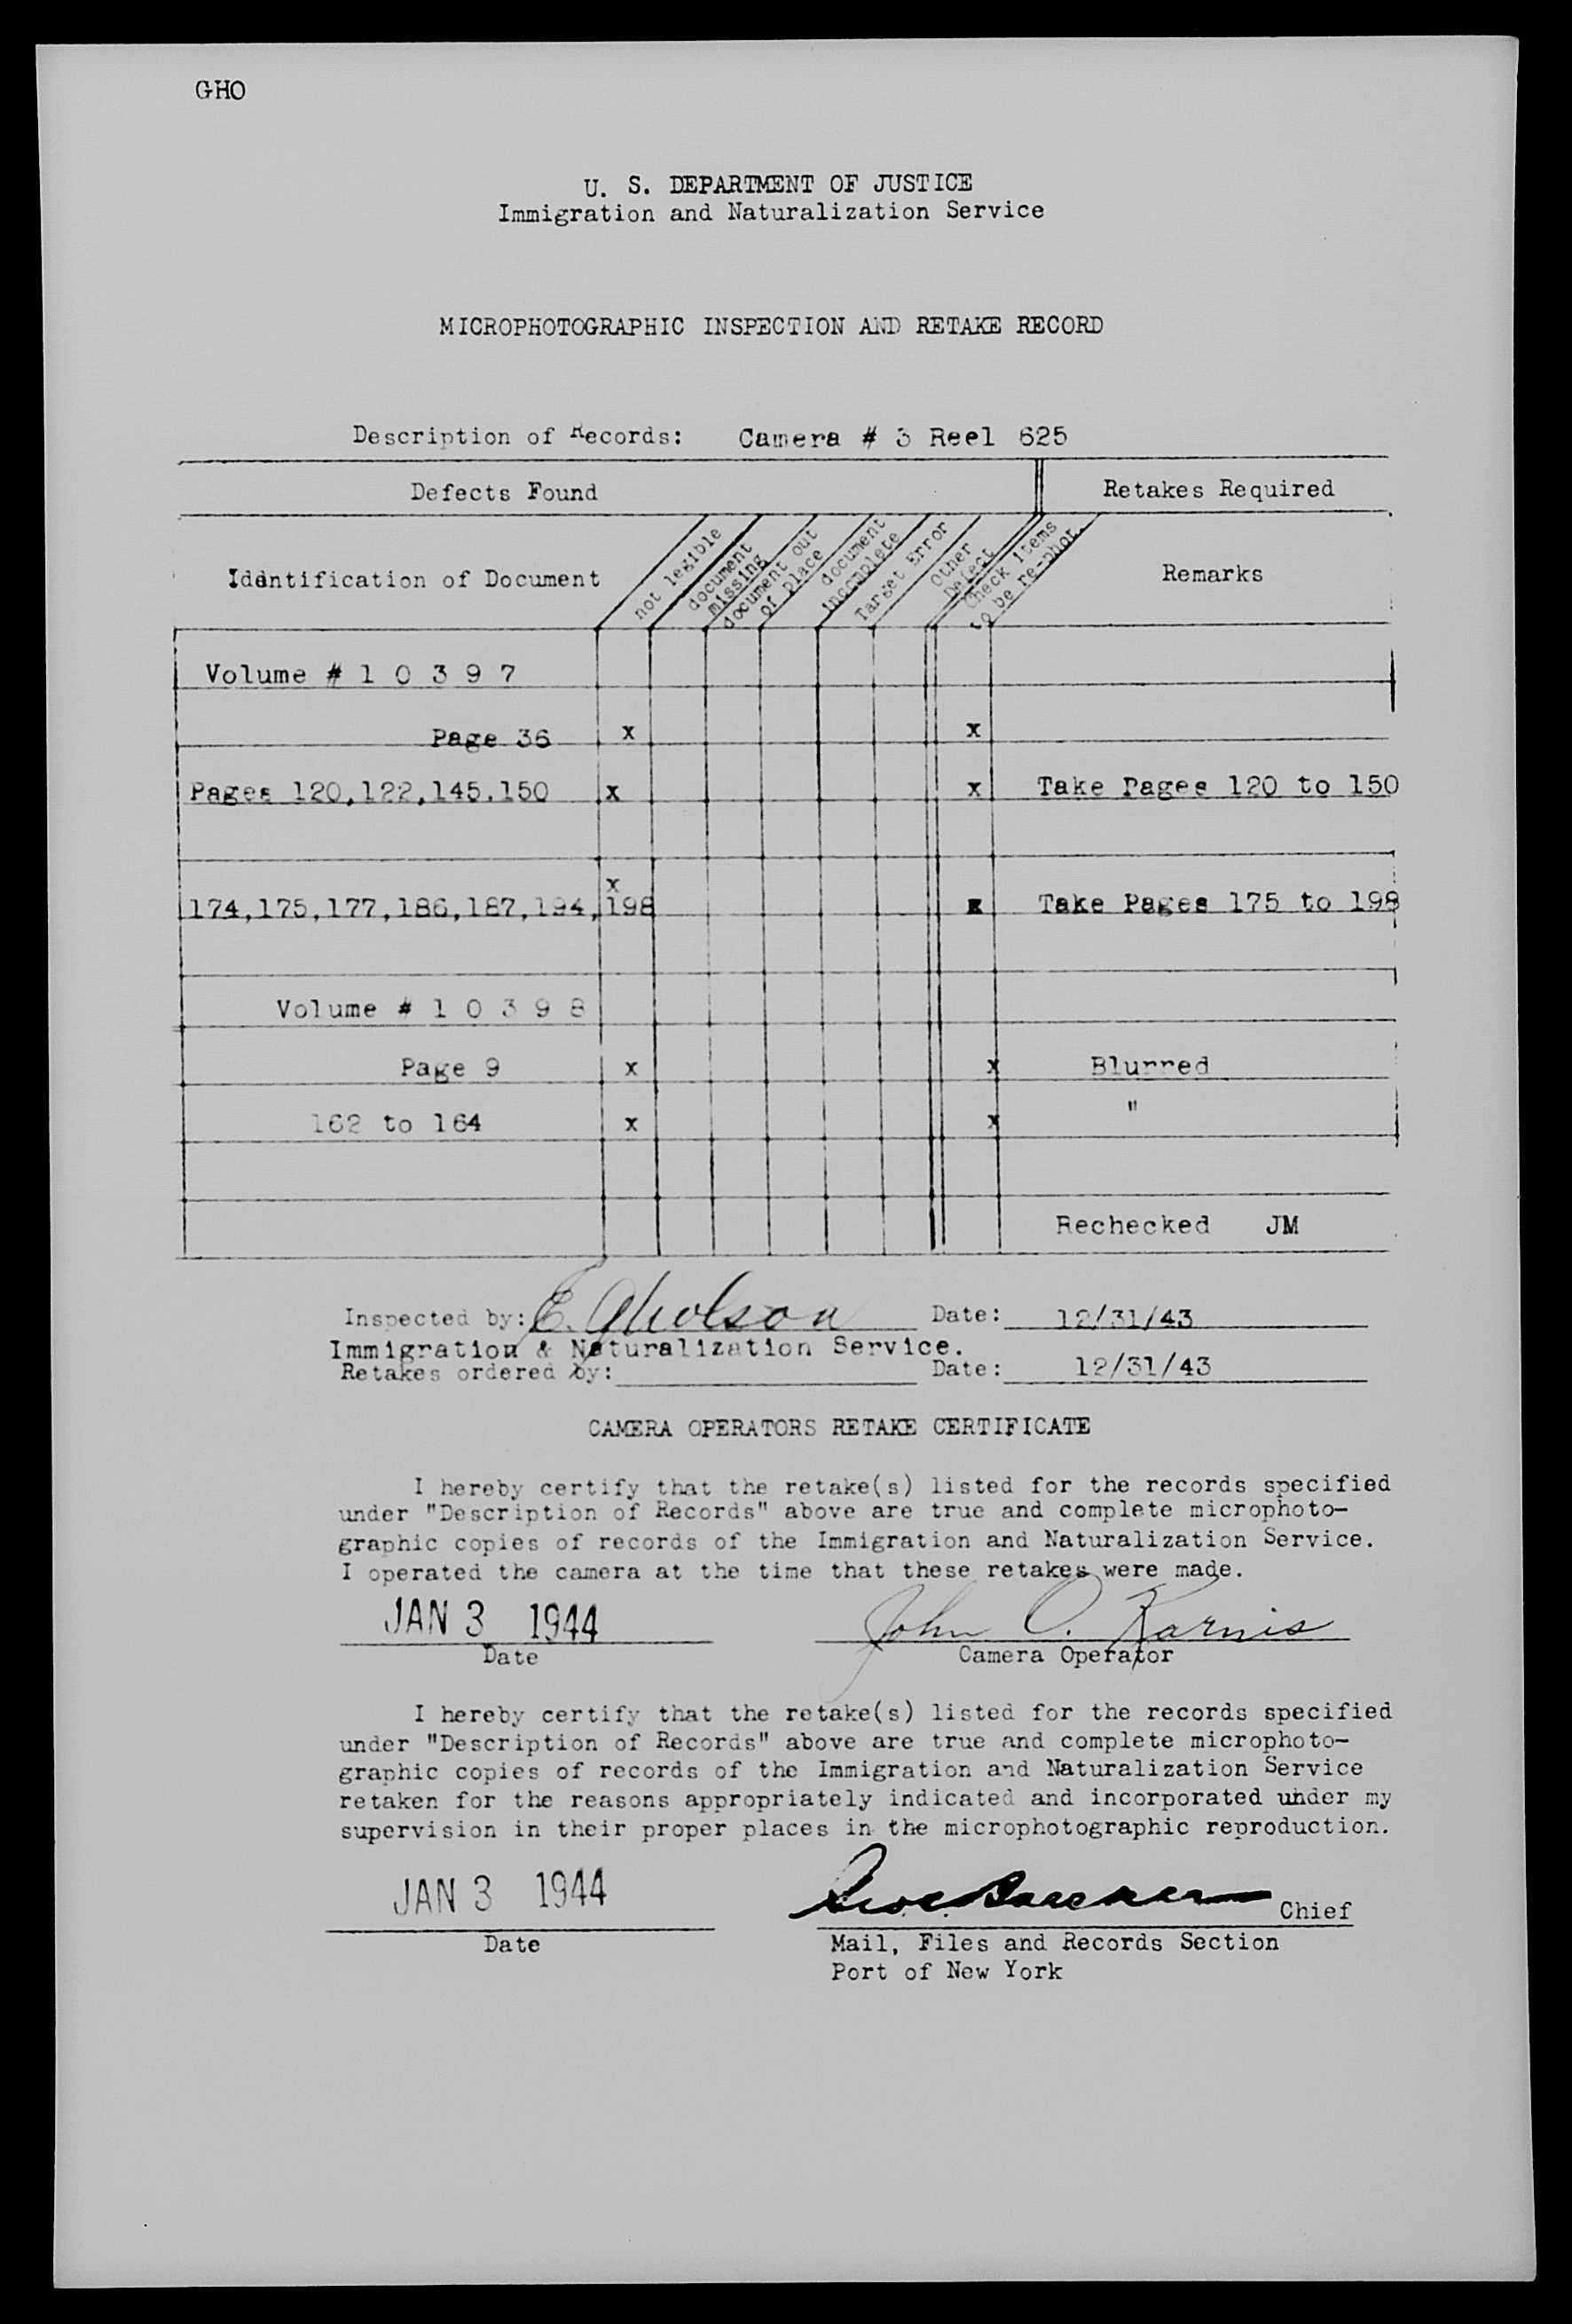 GHO
U. S. DEPARTMENT OF JUSTICE
Immigration and Naturalization Service
MICROPHOTOGRAPHIC INSPECTION AND RETAKE RECORD
Description of Records: Camera # 3 Reel 625
Defects Found Retakes Required
Identification of Document not legible document missing document out of place document incomplete Target Error Other Defect Check items to be re-phot. Remarks
Volume # 1 0 3 9 7
Page 36 x x
Pages 120,122,145.150 x x Take Pages 120 to 150
x
174,175,177,186,187,194,198 x Take Pages 175 to 198
Volume # 1 0 3 9 8
Page 9 x x Blurred
162 to 164 x x "
Rechecked JM
Inspected by: E. Gholson Date: 12/31/43
Immigration & Naturalization Service.
Retakes ordered by: Date: 12/31/43
CAMERA OPERATORS RETAKE CERTIFICATE
I hereby certify that the retake(s) listed for the records specified
under "Description of Records" above are true and complete microphoto-
graphic copies of records of the Immigration and Naturalization Service.
I operated the camera at the time that these retakes were made.
JAN 3 1944 John O. Karnis
Date Camera Operator
I hereby certify that the retake(s) listed for the records specified
under "Description of Records" above are true and complete microphoto-
graphic copies of records of the Immigration and Naturalization Service
retaken for the reasons appropriately indicated and incorporated under my
supervision in their proper places in the microphotographic reproduction.
JAN 3 1944 Chief
Date Mail, Files and Records Section
Port of New York